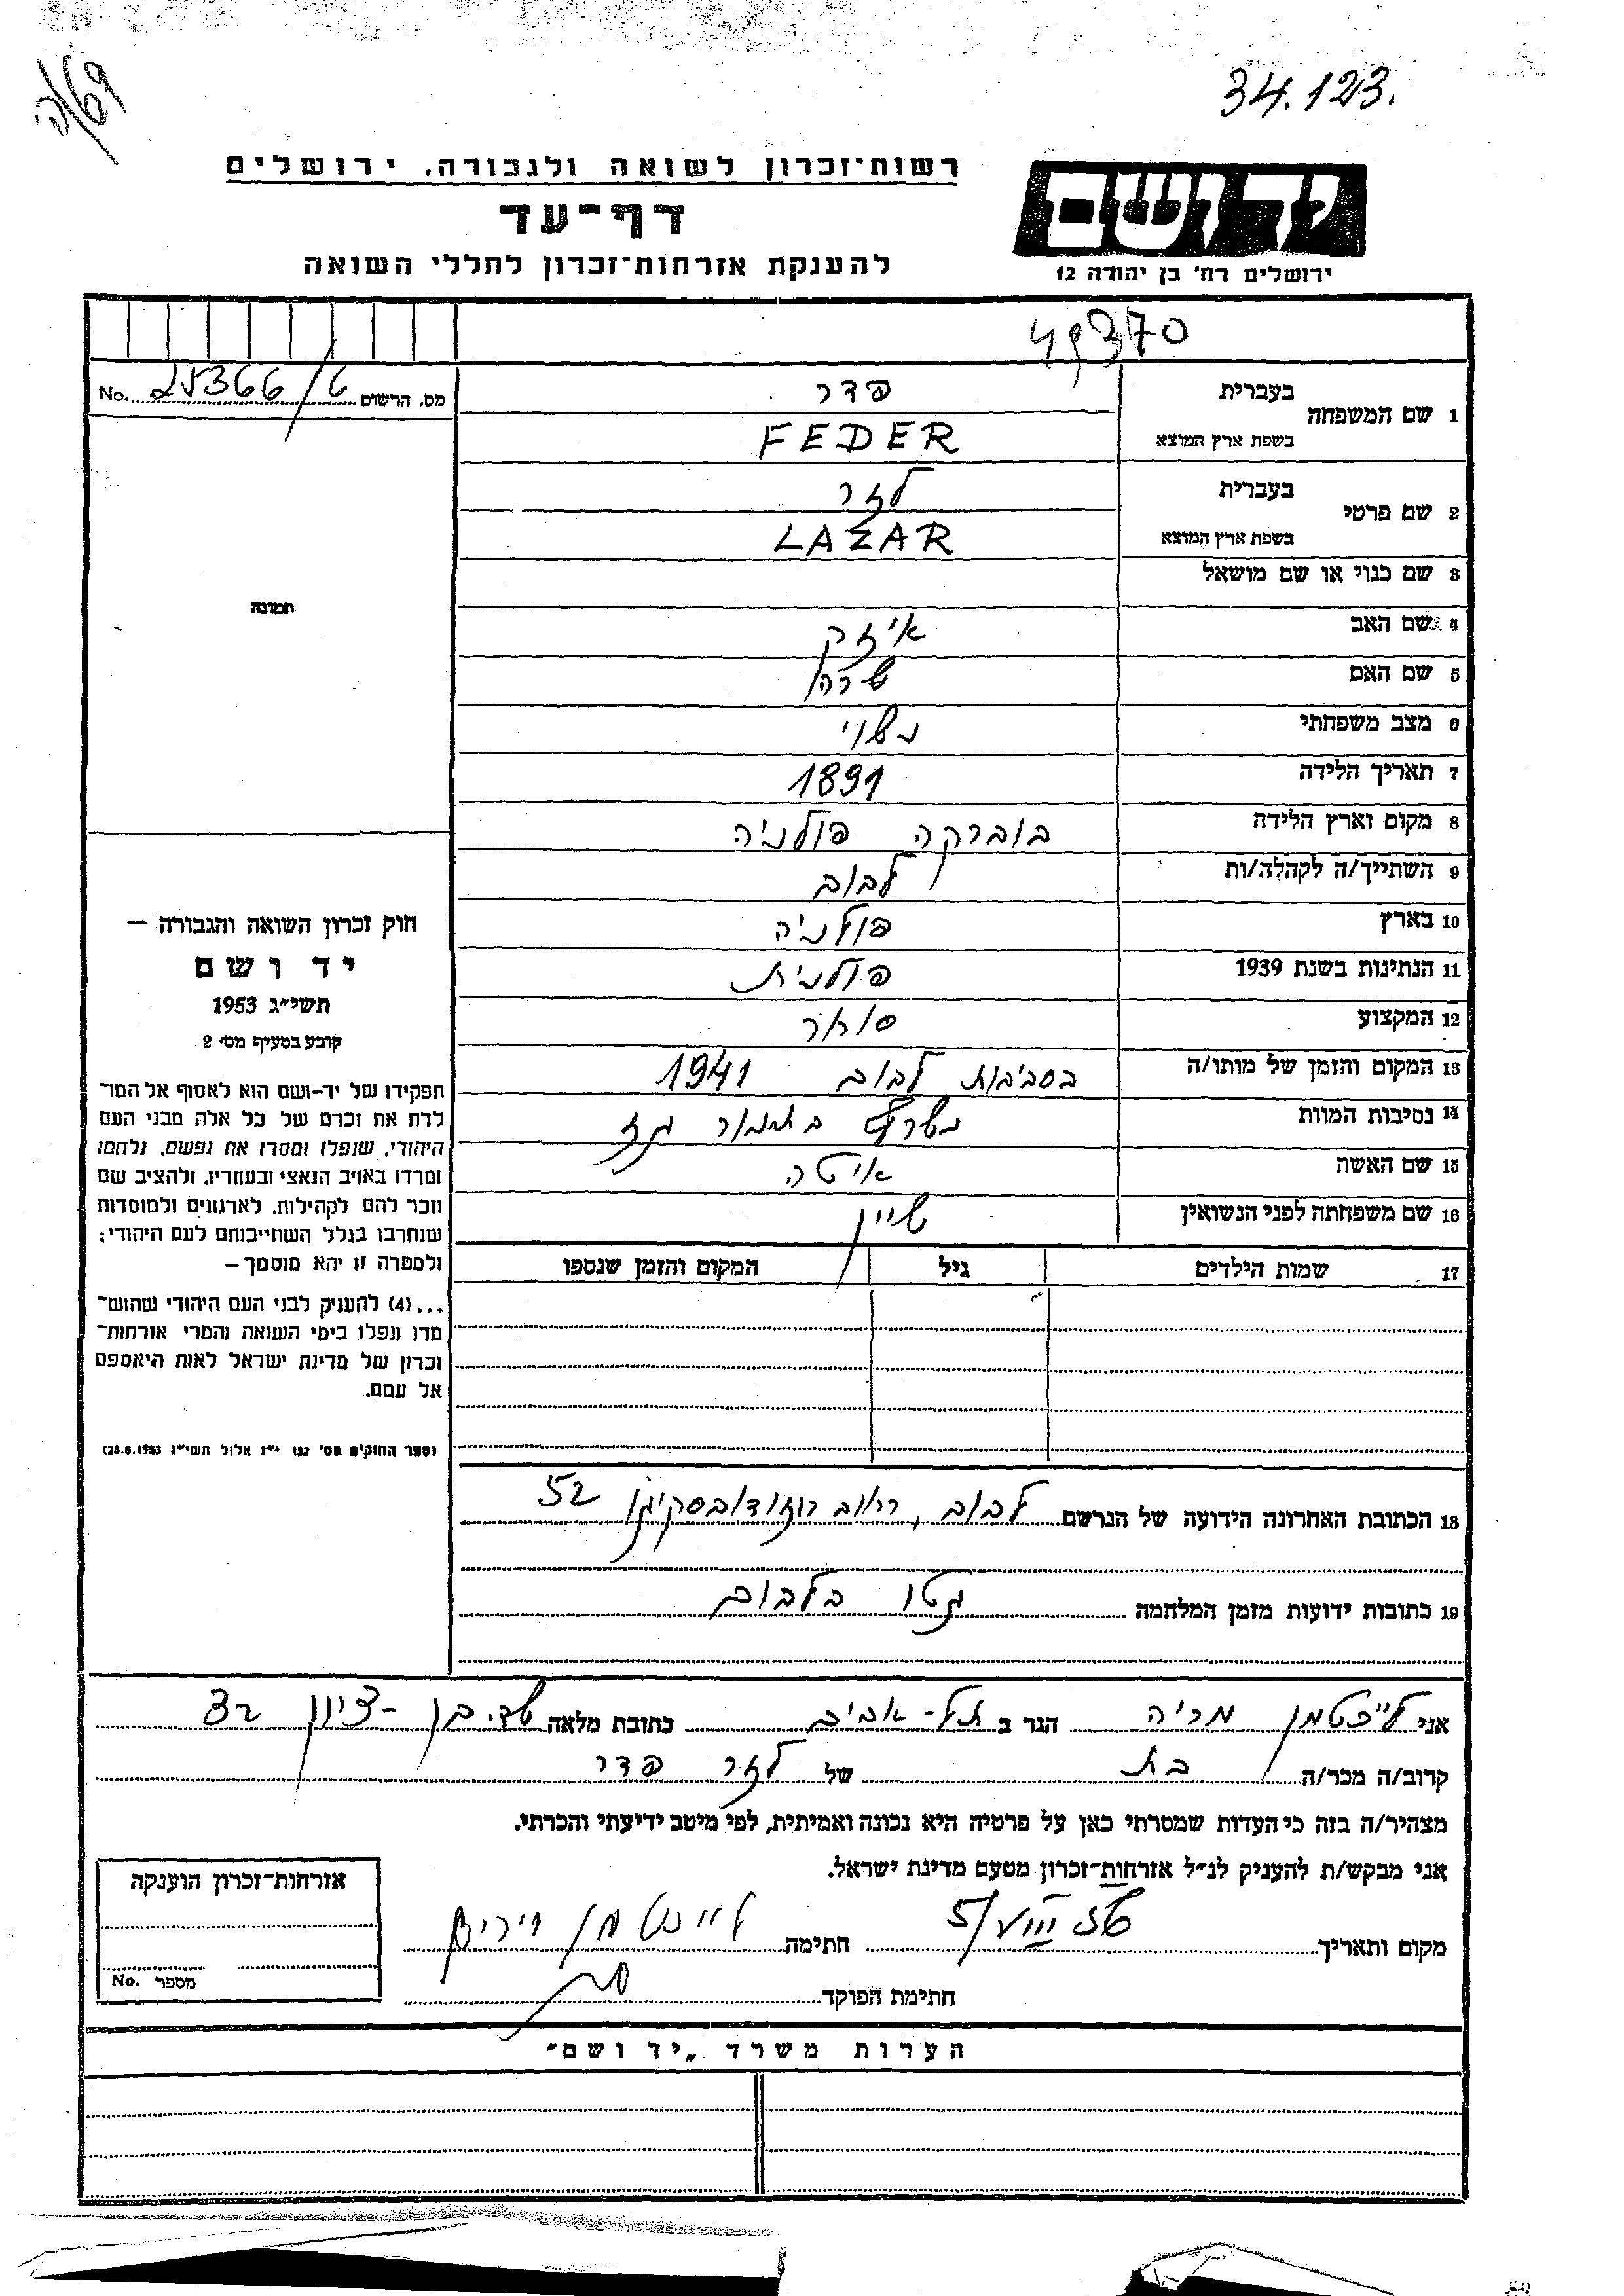 34.123.
רשות־זכרון לשואה ולגבורה, ירושלים
דף־עד
להענקת אזרחות־זכרון לחללי השואה
יד ושם
ירושלים רח׳ בן יהודה 12
49370
מס. הרשום 25366/6 No.
1 שם המשפחה בעברית פדר
בשפת ארץ המוצא FEDER
2 שם פרטי בעברית לזר
בשפת ארץ המוצא LAZAR
3 שם כנוי או שם מושאל
תמונה
4 שם האב איזק
5 שם האם שרה
6 מצב משפחתי נשוי
7 תאריך הלידה 1891
8 מקום וארץ הלידה בוברקה פולניה
9 השתייך/ה לקהלה/ות לבוב
10 בארץ פולניה
11 הנתינות בשנת 1939 פולנית
12 המקצוע סוחר
13 המקום והזמן של מותו/ה בסביבות לבוב 1941
14 נסיבות המוות נשרף בתנור גז
15 שם האשה איטה
16 שם משפחתה לפני הנשואין שיין
17 שמות הילדים גיל המקום והזמן שנספו
חוק זכרון השואה והגבורה —
יד ושם
תשי״ג 1953
קובע בסעיף מס׳ 2
תפקידו של יד־ושם הוא לאסוף אל המו־
לדת את זכרם של כל אלה מבני העם
היהודי, שנפלו ומסרו את נפשם, נלחמו
ומרדו באויב הנאצי ובעוזריו, ולהציב שם
וזכר להם לקהילות, לארגונים ולמוסדות
שנחרבו בגלל השתייכותם לעם היהודי;
ולמטרה זו יהא מוסמך —
...(4) להעניק לבני העם היהודי שהוש־
מדו ונפלו בימי השואה והמרי אזרחות־
זכרון של מדינת ישראל לאות היאספם
אל עמם.
(ספר החוקים מס׳ 132 י״ז אלול תשי״ג 28.8.1953)
18 הכתובת האחרונה הידועה של הנרשם לבוב, רחוב 52
19 כתובות ידועות מזמן המלחמה גטו בלבוב
אני לייכטמן מריה הגר ב תל-אביב כתובת מלאה שד. בן-ציון 32
קרוב/ה מכר/ה בת של לזר פדר
מצהיר/ה בזה כי העדות שמסרתי כאן על פרטיה היא נכונה ואמיתית, לפי מיטב ידיעתי והכרתי.
אני מבקש/ת להעניק לנ״ל אזרחות־זכרון מטעם מדינת ישראל.
מקום ותאריך 5/VIII 56 חתימה לייכטמן
חתימת הפוקד
אזרחות־זכרון הוענקה
מספר No.
הערות משרד „יד ושם״